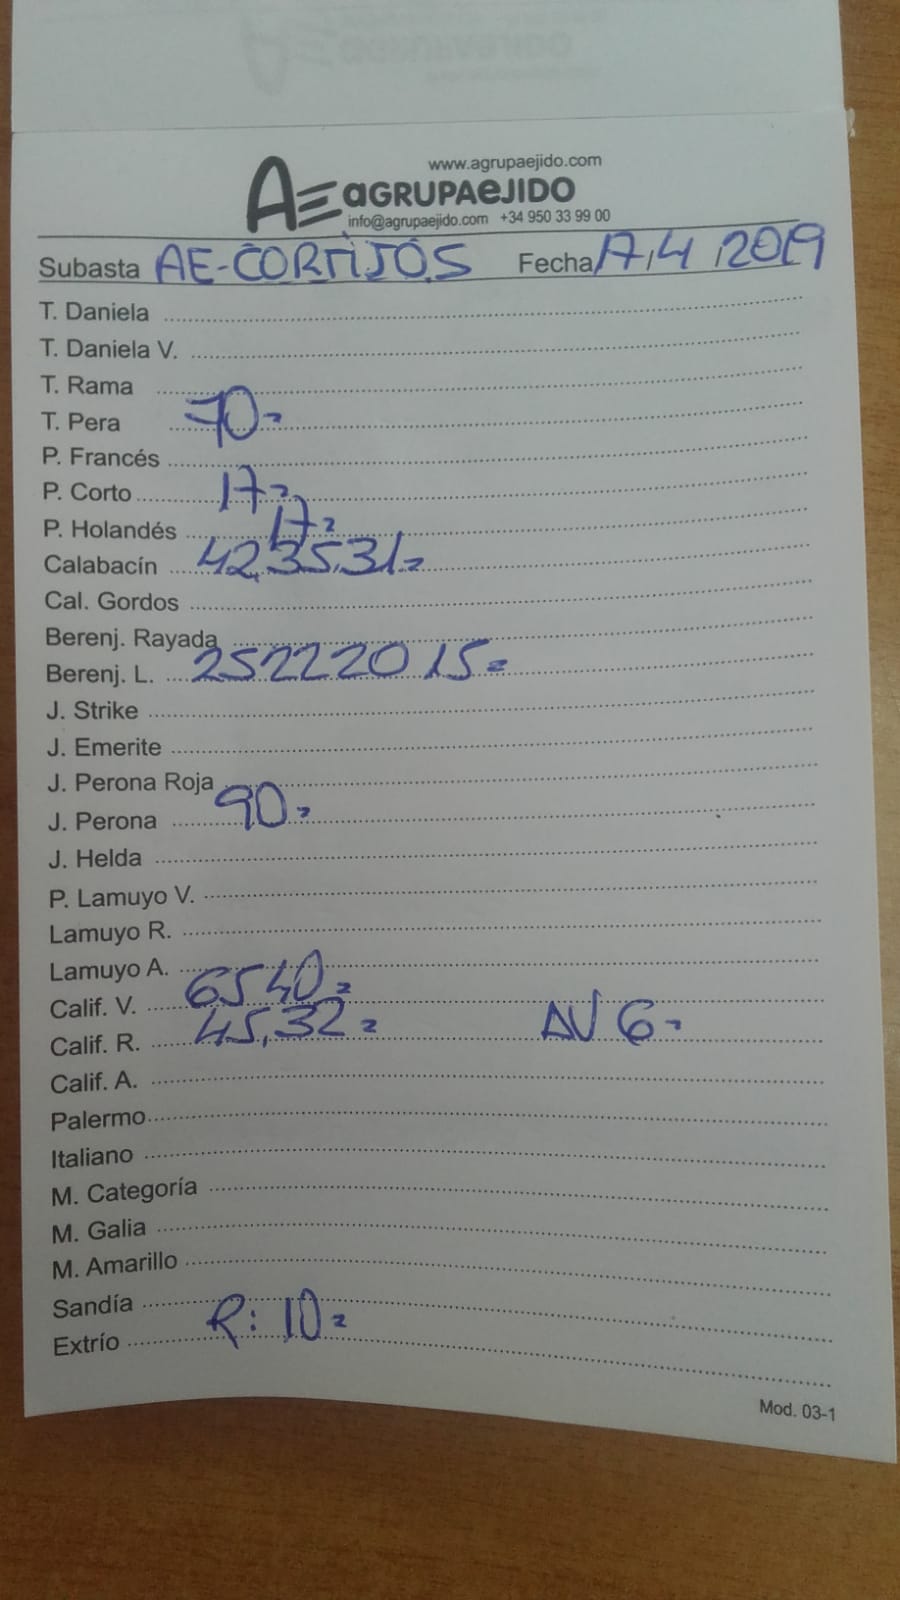 www.agrupaejido.com
AE aGRUPAeJIDO
info@agrupaejido.com +34 950 33 99 00
Subasta AE-CORTIJOS Fecha 17,4 2019
T. Daniela
T. Daniela V.
T. Rama
T. Pera 70=
P. Francés
P. Corto 17=
P. Holandés 17=
Calabacín 42,35,31=
Cal. Gordos
Berenj. Rayada
Berenj. L. 25 22 20 15=
J. Strike
J. Emerite
J. Perona Roja
J. Perona 90=
J. Helda
P. Lamuyo V.
Lamuyo R.
Lamuyo A.
Calif. V. 65 40=
Calif. R. 45,32= AV 6=
Calif. A.
Palermo
Italiano
M. Categoría
M. Galia
M. Amarillo
Sandía
Extrío R: 10=
Mod. 03-1